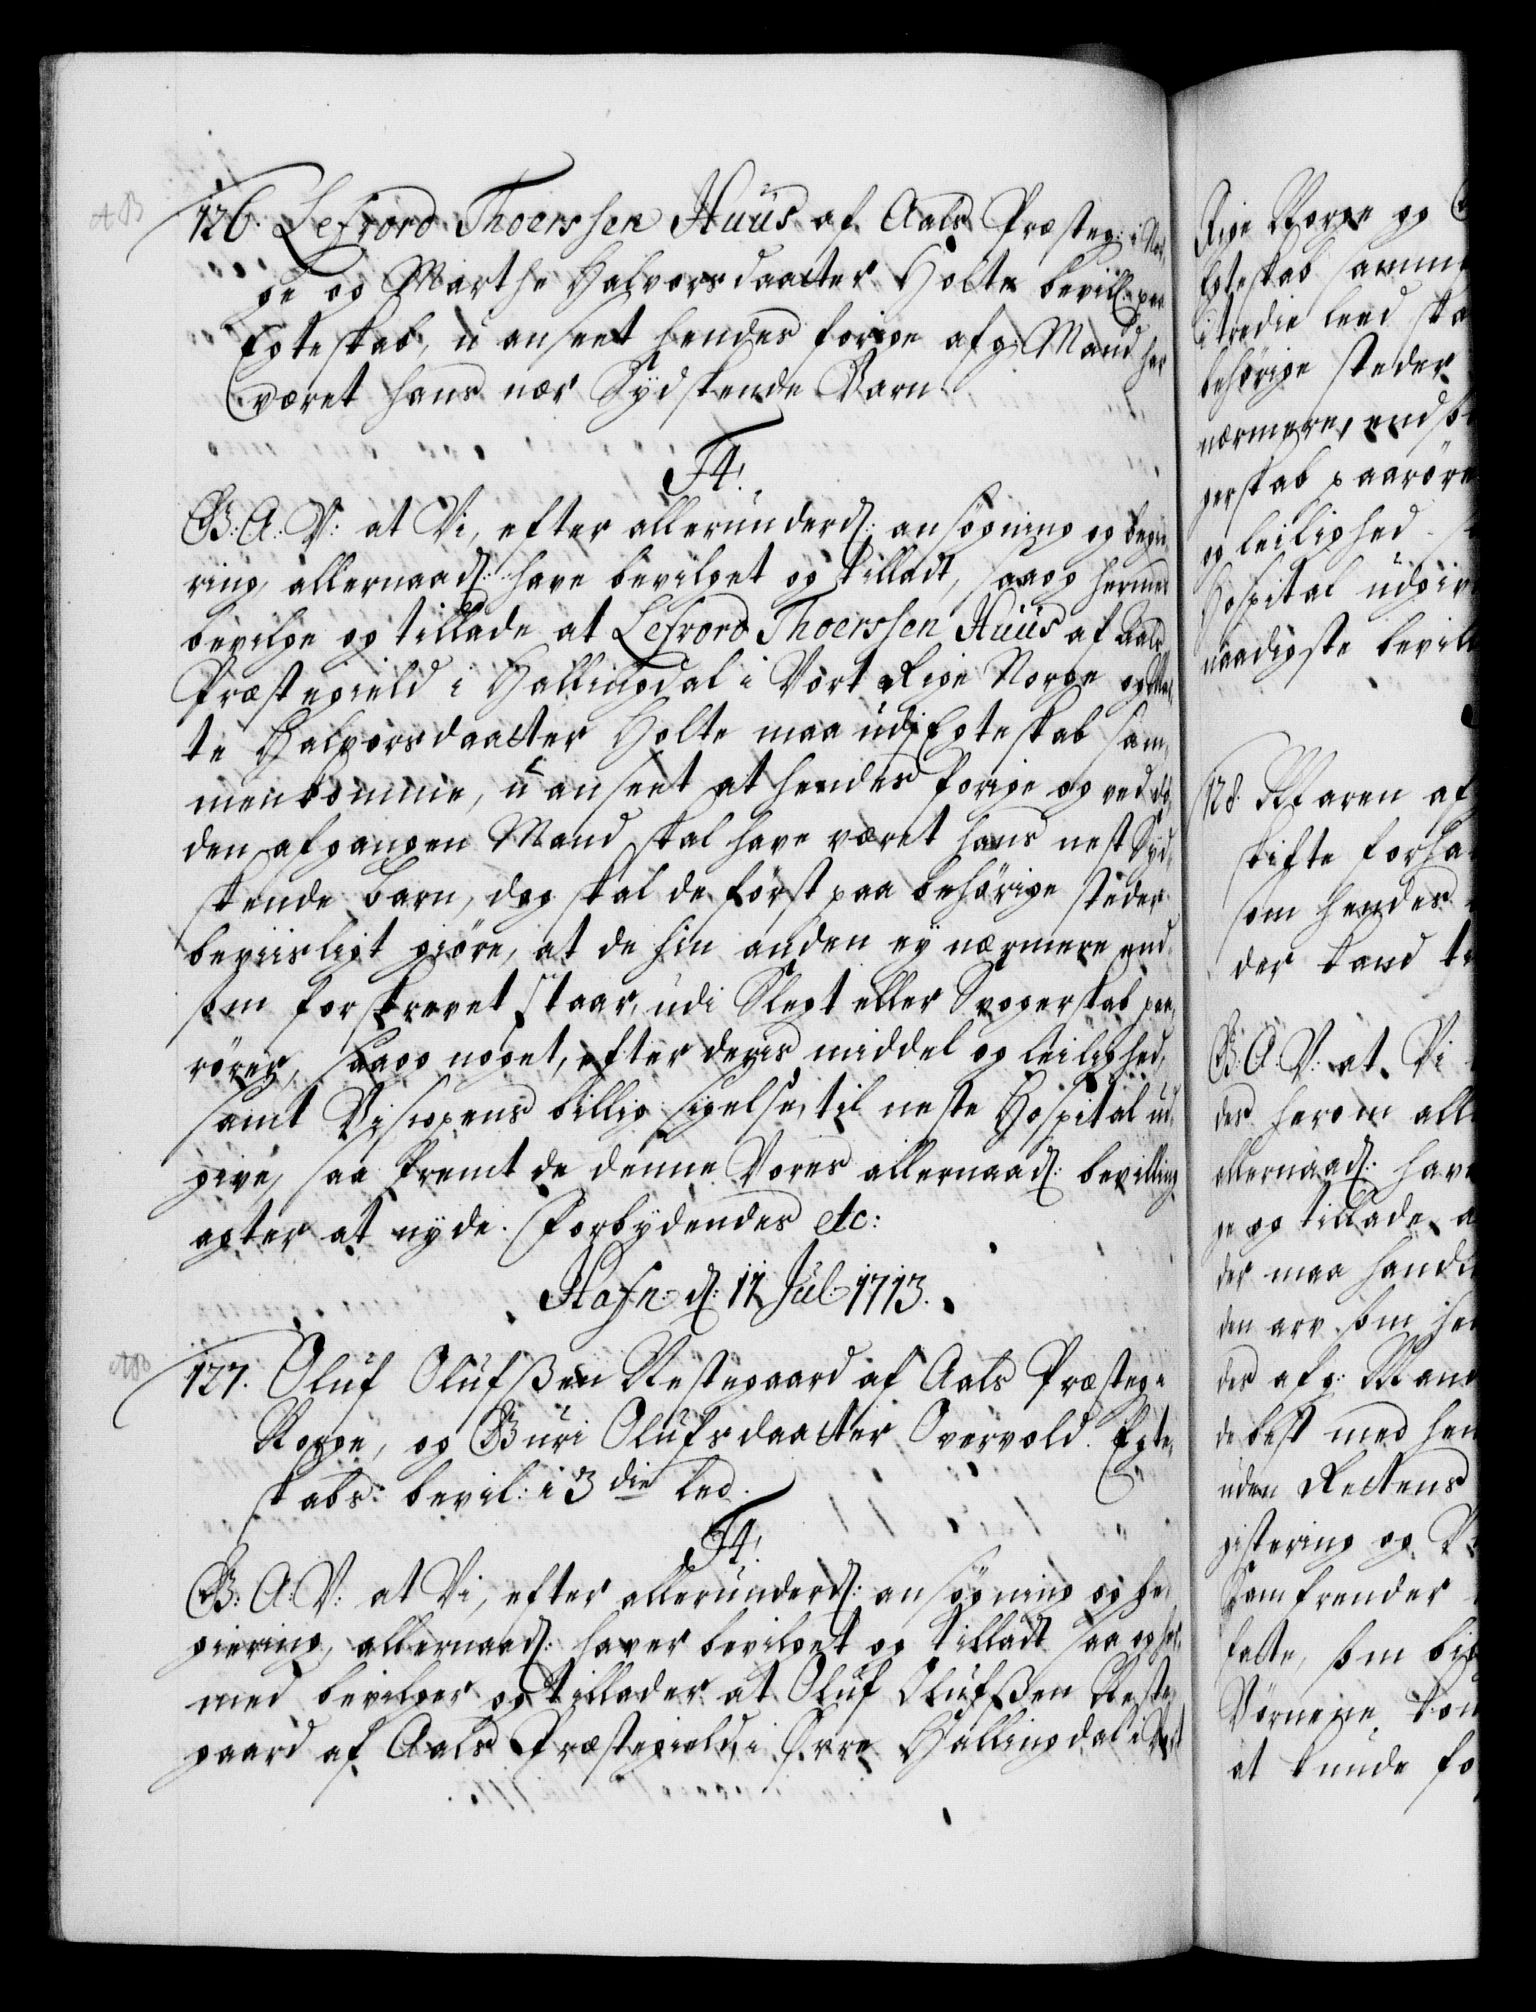 AB
126. Lefrord Thoerssen Huus af Aals Præsteg: i Nor¬
ge og Marthe Halvorsdaatter Holte bevill: paa
Egteskab, uanseet hendes forige afg: Mand har
været hans nær Sydskende Barn.
F4.
G. A. V: at Vi, efter allerunderd: ansøgning og begie¬
ring, allernaad: have bevilget og tilladt, saa og hermed
bevilge og tillade at Lefrord Thoerssen Huus af Aals
Præstegield i Hallingdal i Vort Rige Norge og Mar¬
te Halvorsdaatter Holte maa udi Egteskab sam¬
menkomme, uanseet at hendes forige og ved dø¬
den afgangen Mand skal have været hans nest Syd¬
skende barn, dog skal de først paa behörige steder
beviisligt giöre, at de hin anden ey nærmere end
som forskrevet staar, udi Slegt eller Svogerskab paa¬
rører, saa og noget, efter deris middel og leilighed,
samt Biscopens billig sigelse, til neste Hospital ud¬
give, saa fremt de denne Vores allernaad: bevilling
agter at nyde. Forbydendes etc:
Hafn: d: 17 Jul: 1713.
AB
127. Oluf Olufsßen Nestegaard af Aals Præsteg: i
Norge, og Guri Olufsdaatter Svervold. Egte¬
skabs: bevil: i 3die led.
F4.
G. A. V: at Vi, efter allerunderd: ansøgning og be¬
giering, allernaad: haver bevilget og tilladt saa og her¬
med bevilger og tillader at Oluf Olufsßen Neste¬
gaard af Aals Præstegield, i Øvre Hallingdal i Vort
Rige Norge og
Egteskab samme
i tredie leed ska
behørige steder
nærmere, end so
gerskab paarøre
og leilighed
Hospital udgive
naadigste bevil
128. Maren af
skifte forha
som hendes
der kand
G. A. V: at Vi
des herom all
allernaad: have
ge og tillade a
der maa handl
den arv som he
des afg: Man
de best med hen
uden Rettens
gistering og V
Samfrender
satte, som bi
Vørnene kon
at kunde fo